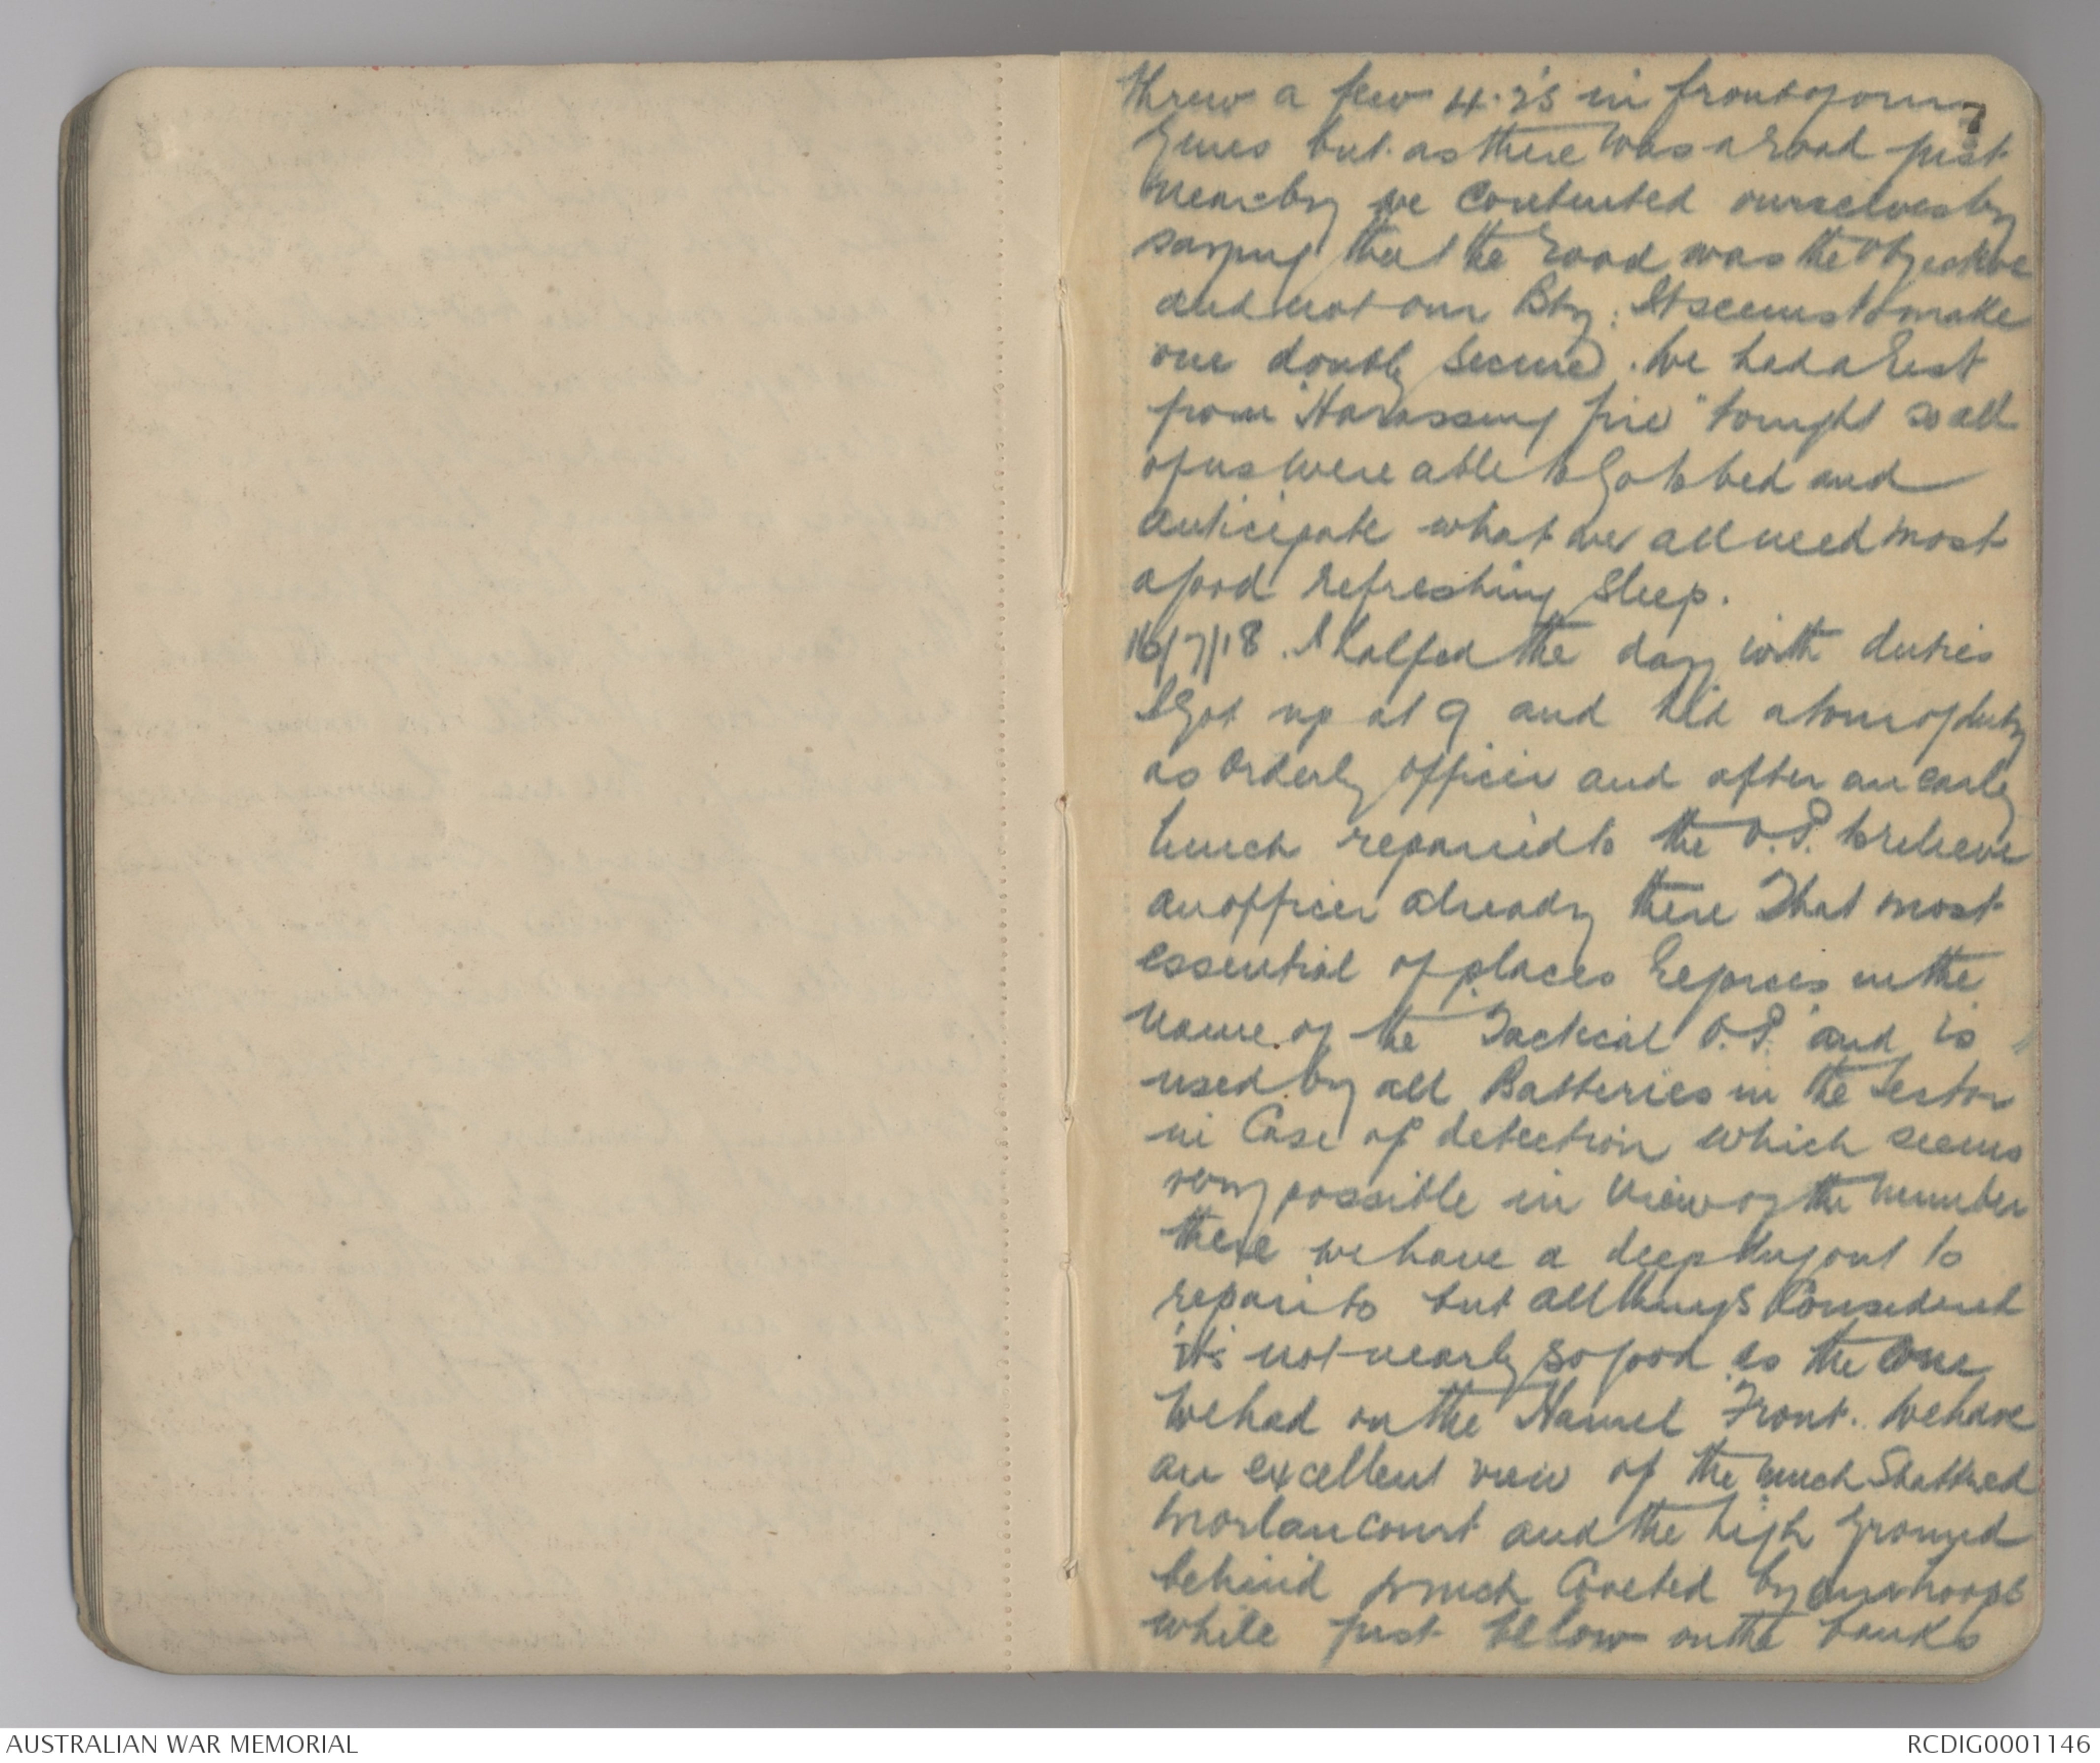 7
threw a few 4.2's in front of our
guns but as there was a road just
near by we contented ourselves by
saying that the road was the Objective
and not our Bty: It seems to make
one doubly secure. We had a rest
from "Harassing fire" tonight so all
of us were able to go to bed and
anticipate what we all need most
a good refreshing sleep.
16/7/18. I halfed the day with duties
I got up at 9 and did a tour of duty
as Orderly Officer and after an early
lunch repaired to the O.P. to relieve
an officer already there That most
essential of places rejoices in the
name of the "Tactical O.P." and is
used by all Batteries in the Sector
in Case of detection which seems
very possible in view of the number
there we have a deep dugout to
repair to but all things Considered
it's not nearly so good as the one
we had on the Hamel Front. We have
an excellent view of the much Shattered
Morlancourt and the high ground
behind so much Coveted by our troops
while just below on the banks
AUSTRALIAN WAR MEMORIAL
RCDIG0001146